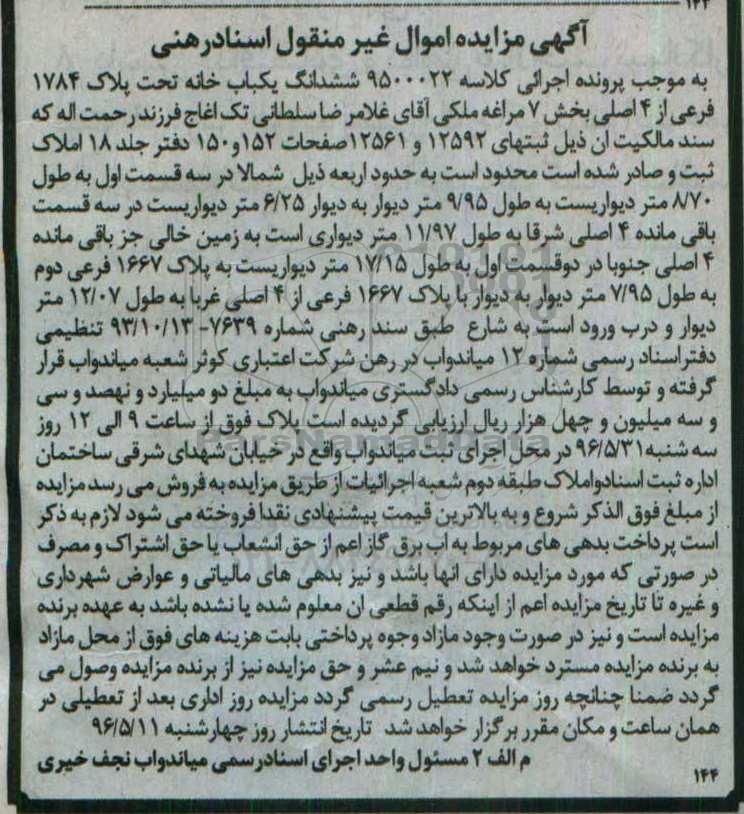 ۱۴۳
آگهی مزایده اموال غیر منقول اسنادرهنی
به موجب پرونده اجرائی کلاسه ۹۵۰۰۰۲۲ ششدانگ یکباب خانه تحت پلاک ۱۷۸۴
فرعی از ۴ اصلی بخش ۷ مراغه ملکی آقای غلامرضا سلطانی تک اغاج فرزند رحمت اله که
سند مالکیت ان ذیل ثبتهای ۱۲۵۹۲ و ۱۲۵۶۱صفحات ۱۵۲و۱۵۰ دفتر جلد ۱۸ املاک
ثبت و صادر شده است محدود است به حدود اربعه ذیل شمالا در سه قسمت اول به طول
۸/۷۰ متر دیواریست به طول ۹/۹۵ متر دیوار به دیوار ۶/۲۵ متر دیواریست در سه قسمت
باقی مانده ۴ اصلی شرقا به طول ۱۱/۹۷ متر دیواری است به زمین خالی جز باقی مانده
۴ اصلی جنوبا در دوقسمت اول به طول ۱۷/۱۵ متر دیواریست به پلاک ۱۶۶۷ فرعی دوم
به طول ۷/۹۵ متر دیوار به دیوار با پلاک ۱۶۶۷ فرعی از ۴ اصلی غربا به طول ۱۲/۰۷ متر
دیوار و درب ورود است به شارع طبق سند رهنی شماره ۷۶۳۹- ۹۳/۱۰/۱۳ تنظیمی
دفتراسناد رسمی شماره ۱۲ میاندواب در رهن شرکت اعتباری کوثر شعبه میاندواب قرار
گرفته و توسط کارشناس رسمی دادگستری میاندواب به مبلغ دو میلیارد و نهصد و سی
و سه میلیون و چهل هزار ریال ارزیابی گردیده است پلاک فوق از ساعت ۹ الی ۱۲ روز
سه شنبه ۹۶/۵/۳۱ در محل اجرای ثبت میاندواب واقع در خیابان شهدای شرقی ساختمان
اداره ثبت اسنادواملاک طبقه دوم شعبه اجرائیات از طریق مزایده به فروش می رسد مزایده
از مبلغ فوق الذکر شروع و به بالاترین قیمت پیشنهادی نقدا فروخته می شود لازم به ذکر
است پرداخت بدهی های مربوط به اب برق گاز اعم از حق انشعاب یا حق اشتراک و مصرف
در صورتی که مورد مزایده دارای انها باشد و نیز بدهی های مالیاتی و عوارض شهرداری
و غیره تا تاریخ مزایده اعم از اینکه رقم قطعی ان معلوم شده یا نشده باشد به عهده برنده
مزایده است و نیز در صورت وجود مازاد وجوه پرداختی بابت هزینه های فوق از محل مازاد
به برنده مزایده مسترد خواهد شد و نیم عشر و حق مزایده نیز از برنده مزایده وصول می
گردد ضمنا چنانچه روز مزایده تعطیل رسمی گردد مزایده روز اداری بعد از تعطیلی در
همان ساعت و مکان مقرر برگزار خواهد شد تاریخ انتشار روز چهارشنبه ۹۶/۵/۱۱
م الف ۲ مسئول واحد اجرای اسنادرسمی میاندواب نجف خیری
۱۴۴
ParsNamadData